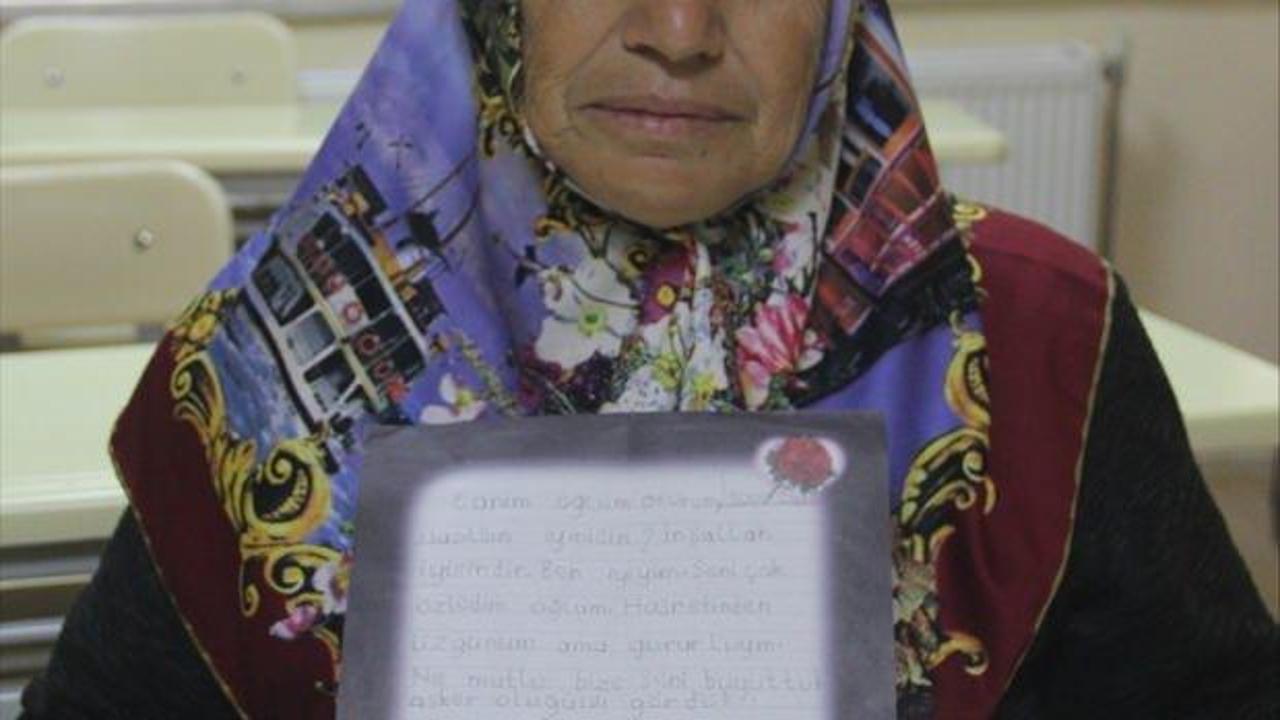 Canım oğlum
iyimidin? İnşallah
iyisindir. Ben iyiyim. Seni çok
özledim oğlum. Hasretinden
üzgünüm ama gururluyum.
Ne mutlu bize seni büyüttük
asker olduğunu gördük